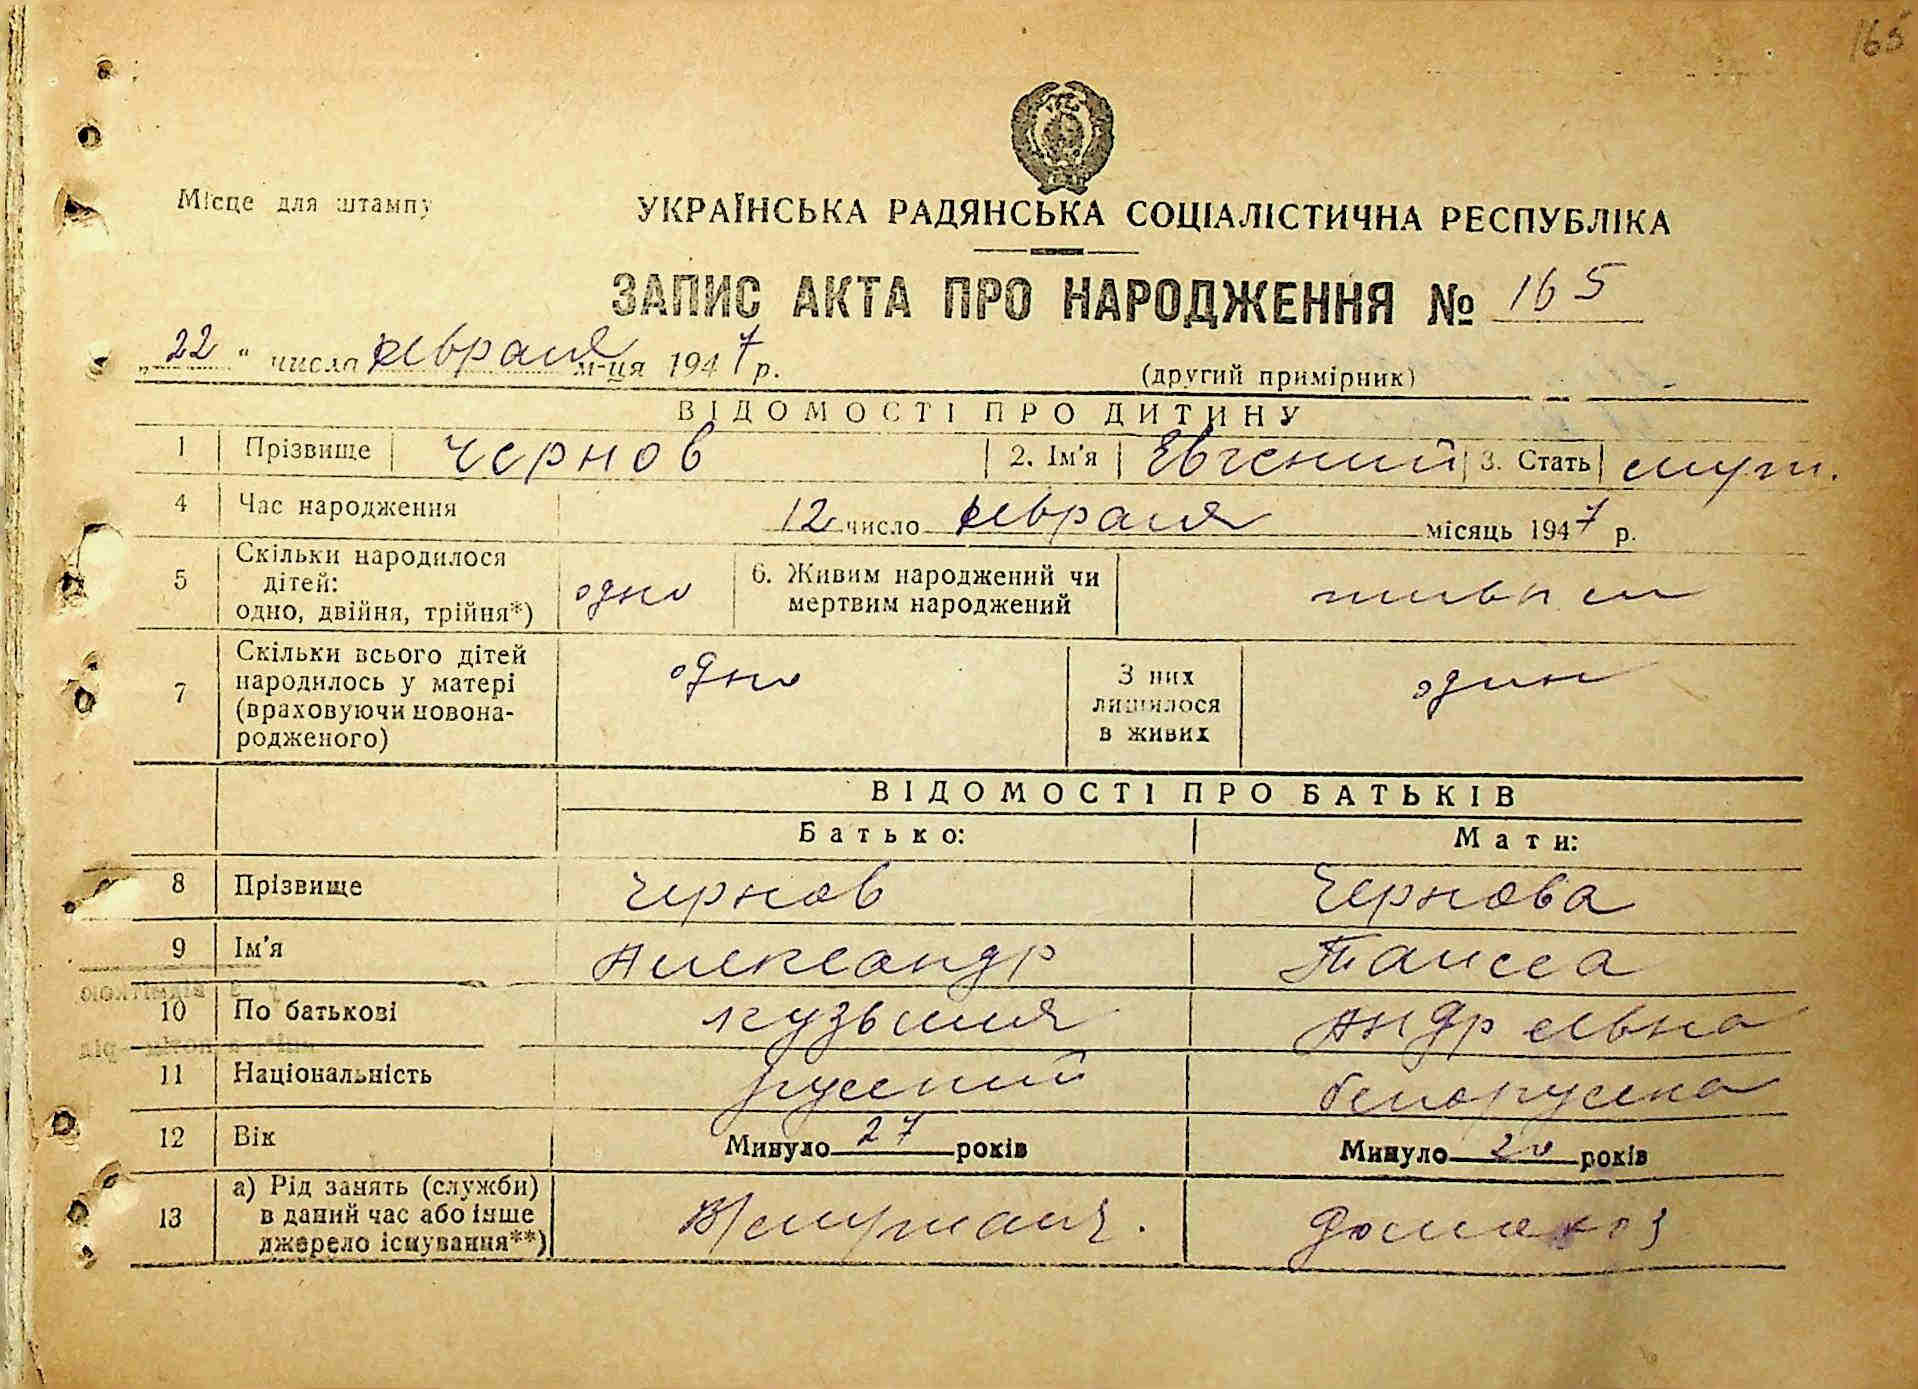 165
Місце для штампу
УКРАЇНСЬКА РАДЯНСЬКА СОЦІАЛІСТИЧНА РЕСПУБЛІКА
ЗАПИС АКТА ПРО НАРОДЖЕННЯ № 165
„22" числа февраля м-ця 1947 р.
(другий примірник)
ВІДОМОСТІ ПРО ДИТИНУ
1 Прізвище Чернов 2. Ім'я Евгений 3. Стать муж.
4 Час народження 12 число февраля місяць 1947 р.
5 Скільки народилося дітей: одно, двійня, трійня*) одно 6. Живим народжений чи мертвим народжений живым
7 Скільки всього дітей народилось у матері (враховуючи новонародженого) одно З них лишилося в живих один
ВІДОМОСТІ ПРО БАТЬКІВ
Батько: Мати:
8 Прізвище Чернов Чернова
9 Ім'я Александр Таисса
10 По батькові Кузьмич Андреевна
11 Національність русский белоруска
12 Вік Минуло 27 років Минуло 20 років
13 а) Рід занять (служби) в даний час або інше джерело існування**) В/служащ. домохоз